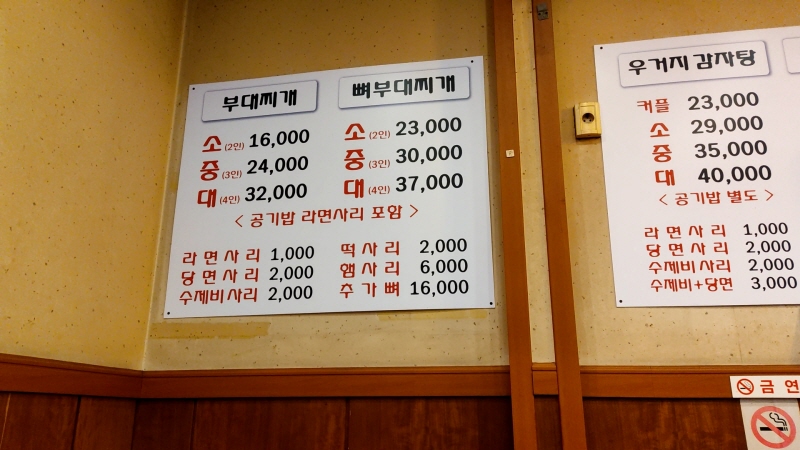 부대찌개
소 (2인) 16,000
중 (3인) 24,000
대 (4인) 32,000
뼈부대찌개
소 (2인) 23,000
중 (3인) 30,000
대 (4인) 37,000
< 공기밥 라면사리 포함 >
라면사리 1,000
당면사리 2,000
수제비사리 2,000
떡사리 2,000
햄사리 6,000
추가뼈 16,000
우거지 감자탕
커플 23,000
소 29,000
중 35,000
대 40,000
< 공기밥 별도 >
라면사리 1,000
당면사리 2,000
수제비사리 2,000
수제비+당면 3,000
금연